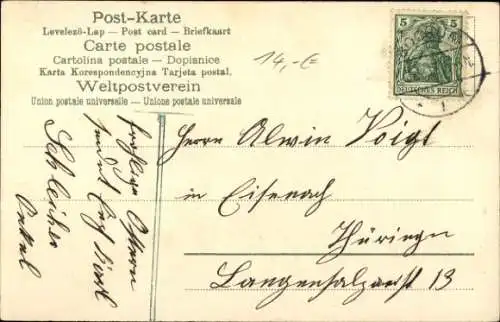 Post-Karte
Levelező-Lap — Post card — Briefkaart
Carte postale
Cartolina postale — Dopisnice
Karta Korespondencyjna Tarjeta postal.
Weltpostverein
Union postale universelle — Unione postale universale
14,-€
5 5
DEUTSCHES REICH
Herrn Alwin Voigt
in Eisenach
Thüringen
Langensalzaerst 13
Ostern
sendet
Onkel